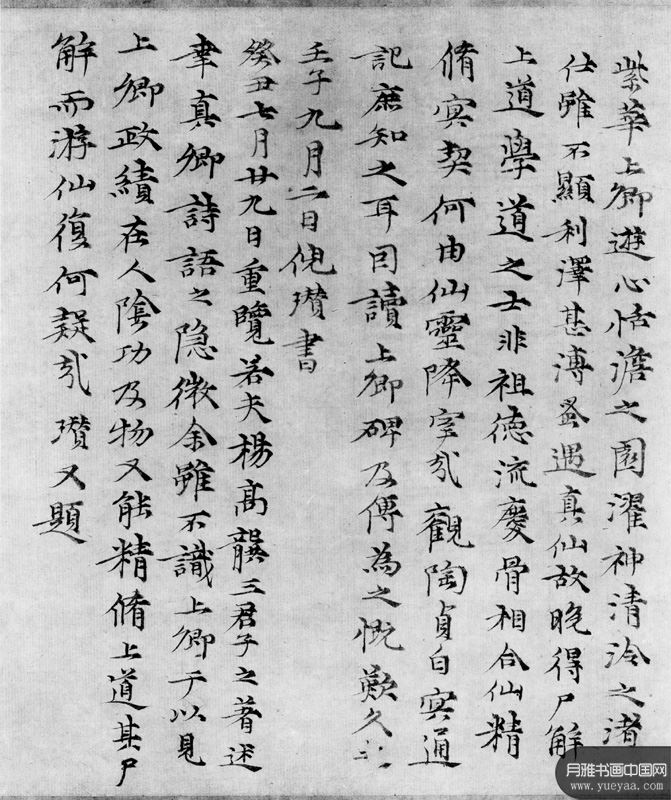 紫華上卿遊心恬澹之園濯神清泠之渚
仕雖不顯利澤甚溥蚤遇真仙故晚得尸解
上道學道之士非祖德流慶骨相合仙精
脩冥契何由仙靈降室哉觀陶貞白冥通
記庶知之耳因讀上卿碑及傳為之慨歎久
壬子九月二日倪瓚書
癸丑七月廿九日重覽若夫楊高龔三君子之著述
聿真卿詩語之隐微余雖不識上卿于以見
上卿政績在人陰功及物又能精脩上道其尸
解而游仙復何疑哉瓚又題
月雅书画中国网
www.yueyaa.com